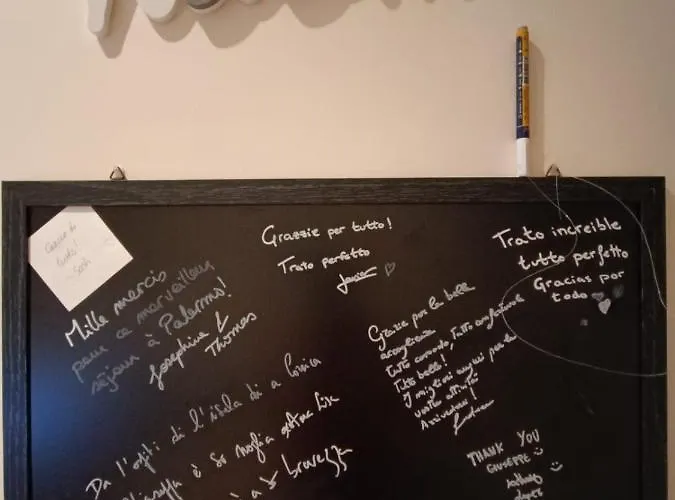 Grazie di
tutto!
Sash
Mille mercis
pour ce merveilleux
séjour à Palermo!
Josephine &
Thomas
Grazzie per tutto!
Trato perfetto
Javier
Trato increible
tutto perfetto
Gracias por
todo
Grazie per la bella
accoglienza
Tutto comodo, tutto confortevole
Tutto bello!
I migliori auguri per la
vostra attività
Arrivederci!
Da l'ospiti di l'isula di a Corsica
è so moglia
a so bravezza
THANK YOU
GIUSEPPE
Anthony